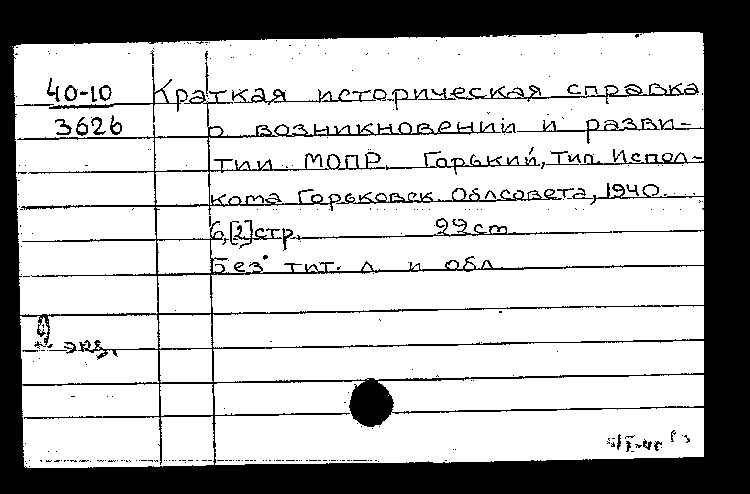 40-10
3626
Краткая историческая справка
о возникновении и разви-
тии МОПР. Горький, Тип. Испол-
кома Горьковск. Облсовета, 1940.
6,[2]стр. 22cm
Без тит. л. и обл.
2 экз.